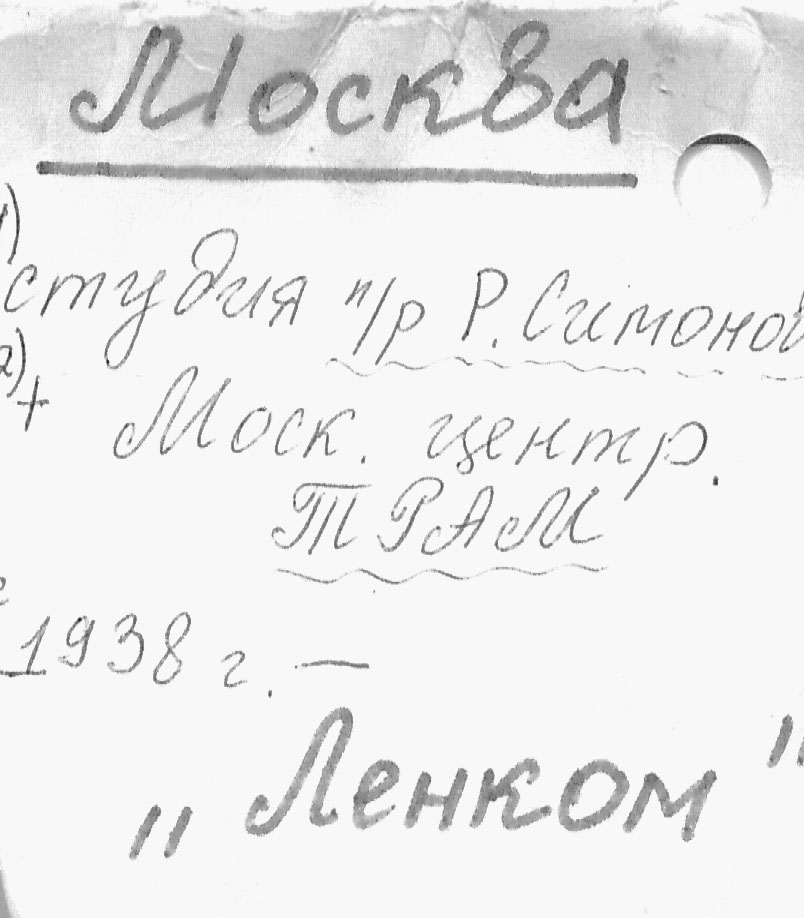 Москва
1)
студия п/р Р. Симонов
2)
+ Моск. центр.
ТРАМ
с
1938 г. —
„Ленком"